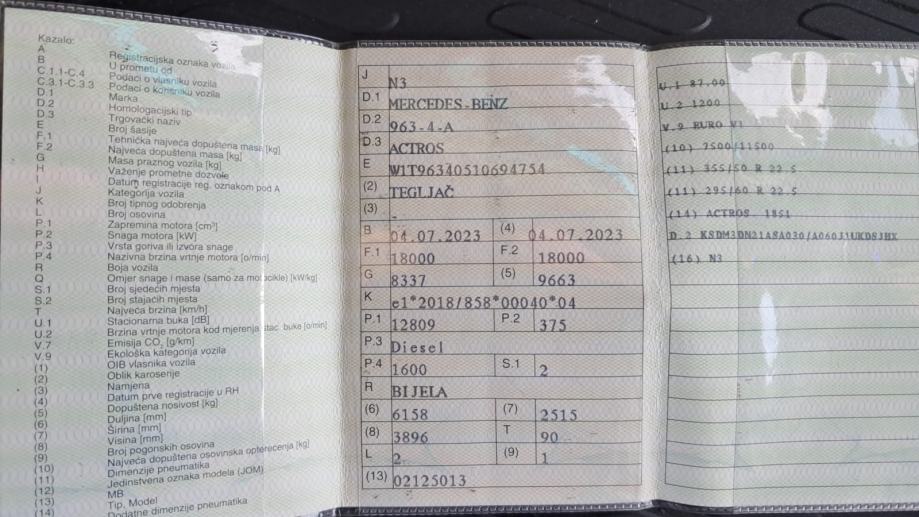 Kazalo:
A Registracijska oznaka vozila
B U prometu od
C.1.1-C.4 Podaci o vlasniku vozila
C.3.1-C.3.3 Podaci o korisniku vozila
D.1 Marka
D.2 Homologacijski tip
D.3 Trgovački naziv
E Broj šasije
F.1 Tehnička najveća dopuštena masa [kg]
F.2 Najveća dopuštena masa [kg]
G Masa praznog vozila [kg]
H Važenje prometne dozvole
I Datum registracije reg. oznakom pod A
J Kategorija vozila
K Broj tipnog odobrenja
L Broj osovina
P.1 Zapremina motora [cm³]
P.2 Snaga motora [kW]
P.3 Vrsta goriva ili izvora snage
P.4 Nazivna brzina vrtnje motora [o/min]
R Boja vozila
Q Omjer snage i mase (samo za motocikle) [kW/kg]
S.1 Broj sjedećih mjesta
S.2 Broj stajaćih mjesta
T Najveća brzina [km/h]
U.1 Stacionarna buka [dB]
U.2 Brzina vrtnje motora kod mjerenja stac. buke [o/min]
V.7 Emisija CO₂ [g/km]
V.9 Ekološka kategorija vozila
(1) OIB vlasnika vozila
(2) Oblik karoserije
(3) Namjena
(4) Datum prve registracije u RH
(5) Dopuštena nosivost [kg]
(6) Duljina [mm]
(7) Širina [mm]
(8) Visina [mm]
(9) Broj pogonskih osovina
(10) Najveća dopuštena osovinska opterećenja [kg]
(11) Dimenzije pneumatika
(12) Jedinstvena oznaka modela (JOM)
(13) MB
(14) Tip, Model
Dodatne dimenzije pneumatika
J N3
D.1 MERCEDES-BENZ
D.2 963-4-A
D.3 ACTROS
E W1T96340510694754
(2) TEGLJAČ
(3) -
B 04.07.2023 (4) 04.07.2023
F.1 18000 F.2 18000
G 8337 (5) 9663
K e1*2018/858*00040*04
P.1 12809 P.2 375
P.3 Diesel
P.4 1600 S.1 2
R BIJELA
(6) 6158 (7) 2515
(8) 3896 T 90
L 2 (9) 1
(13) 02125013
U.1 87.00
U.2 1200
V.9 EURO VI
(10) 7500/11500
(11) 355/50 R 22.5
(11) 295/60 R 22.5
(14) ACTROS 1851
D.2 KSDM3DN21ASA030/A060J1UKDSJHX
(16) N3